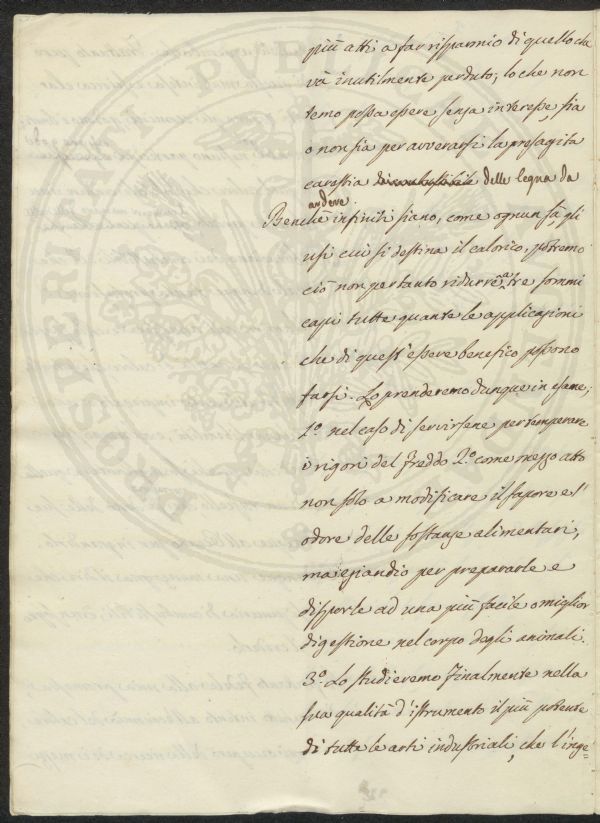 più atti a far risparmio di quello che
và inutilmente perduto; lo che non
temo possa essere senza interesse, sia
o non sia per avverarsi la presagita
carestia di combustibile delle legna da
ardere.
Benchè infiniti siano, come ognun sà, gli
usi cui si destina il calorico, potremo
ciò non pertanto ridurre a tre sommi
capi tutte quante le applicazioni
che di quest'essere benefico possono
farsi. Lo prenderemo dunque in esame;
1º. nel caso di servirsene per temperare
i rigori del freddo 2.º come mezzo atto
non solo a modificare il sapore e l'
odore delle sostanze alimentari,
ma eziandio per prepararle e
disporle ad una più facile o miglior
digestione nel corpo degli animali.
3.º Lo studieremo finalmente nella
sua qualità d'istrumento il più potente
di tutte le arti industriali, che l'inge=